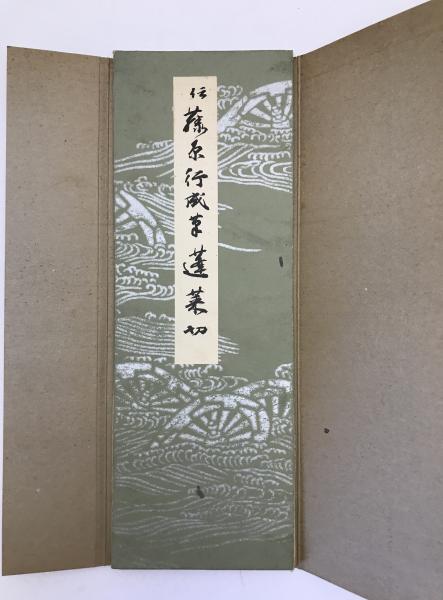 伝藤原行成筆蓬莱切